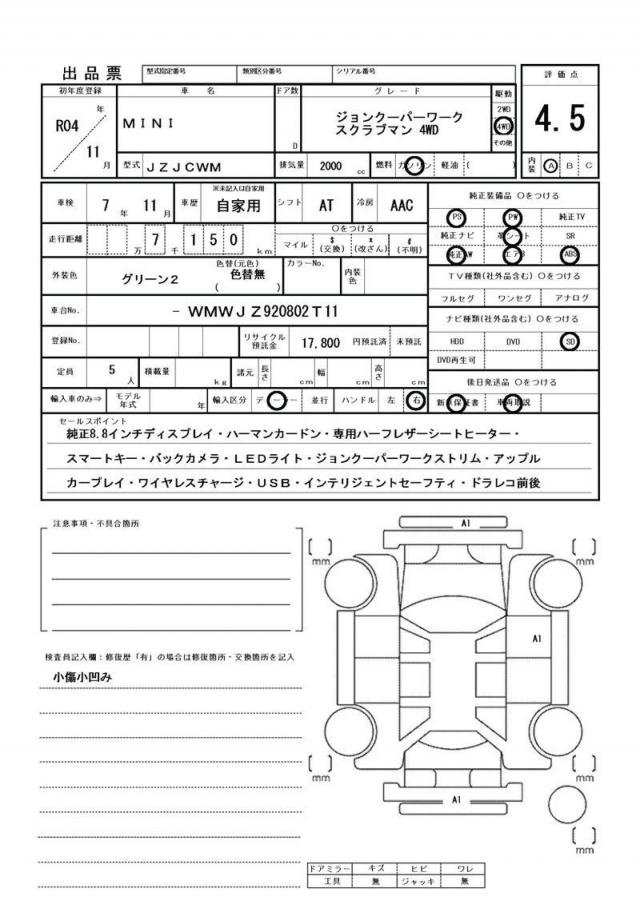 出品票
型式指定番号 類別区分番号 シリアル番号
評価点
4.5
内装 A B C
初年度登録 車名 ドア数 グレード 駆動
R04 年 11 月
MINI
D
ジョンクーパーワーク
スクラブマン 4WD
2WD
4WD
その他
型式 JZJCWM 排気量 2000 cc 燃料 ガソリン 軽油 ( )
車検 7 年 11 月 車歴 ※未記入は自家用 自家用 シフト AT 冷房 AAC
走行距離 万 7 千 1 5 0 km
〇をつける
マイル $ (交換) * (改ざん) # (不明)
外装色 グリーン2 色替(元色) 色替無 ( ) カラーNo. 内装色
車台No. - WMWJZ920802T11
登録No. リサイクル預託金 17,800 円預託済 未預託
定員 5 人 積載量 kg 諸元 長さ cm 幅 cm 高さ cm
輸入車のみ⇒ モデル年式 年 輸入区分 ディーラー 並行 ハンドル 左 右
純正装備品 〇をつける
PS PW 純正TV
純正ナビ 革シート SR
純正AW エアB ABS
TV種類(社外品含む) 〇をつける
フルセグ ワンセグ アナログ
ナビ種類(社外品含む) 〇をつける
HDD DVD SD
DVD再生可
後日発送品 〇をつける
新車保証書 車両取説
セールスポイント
純正8.8インチディスプレイ・ハーマンカードン・専用ハーフレザーシートヒーター・
スマートキー・バックカメラ・LEDライト・ジョンクーパーワークストリム・アップル
カープレイ・ワイヤレスチャージ・USB・インテリジェントセーフティ・ドラレコ前後
注意事項・不具合箇所
検査員記入欄:修復歴「有」の場合は修復箇所・交換箇所を記入
小傷小凹み
A1
[ ] mm
[ ] mm
A1
[ ] mm
[ ] mm
A1
[ ] mm
ドアミラー キズ ヒビ ワレ
工具 無 ジャッキ 無